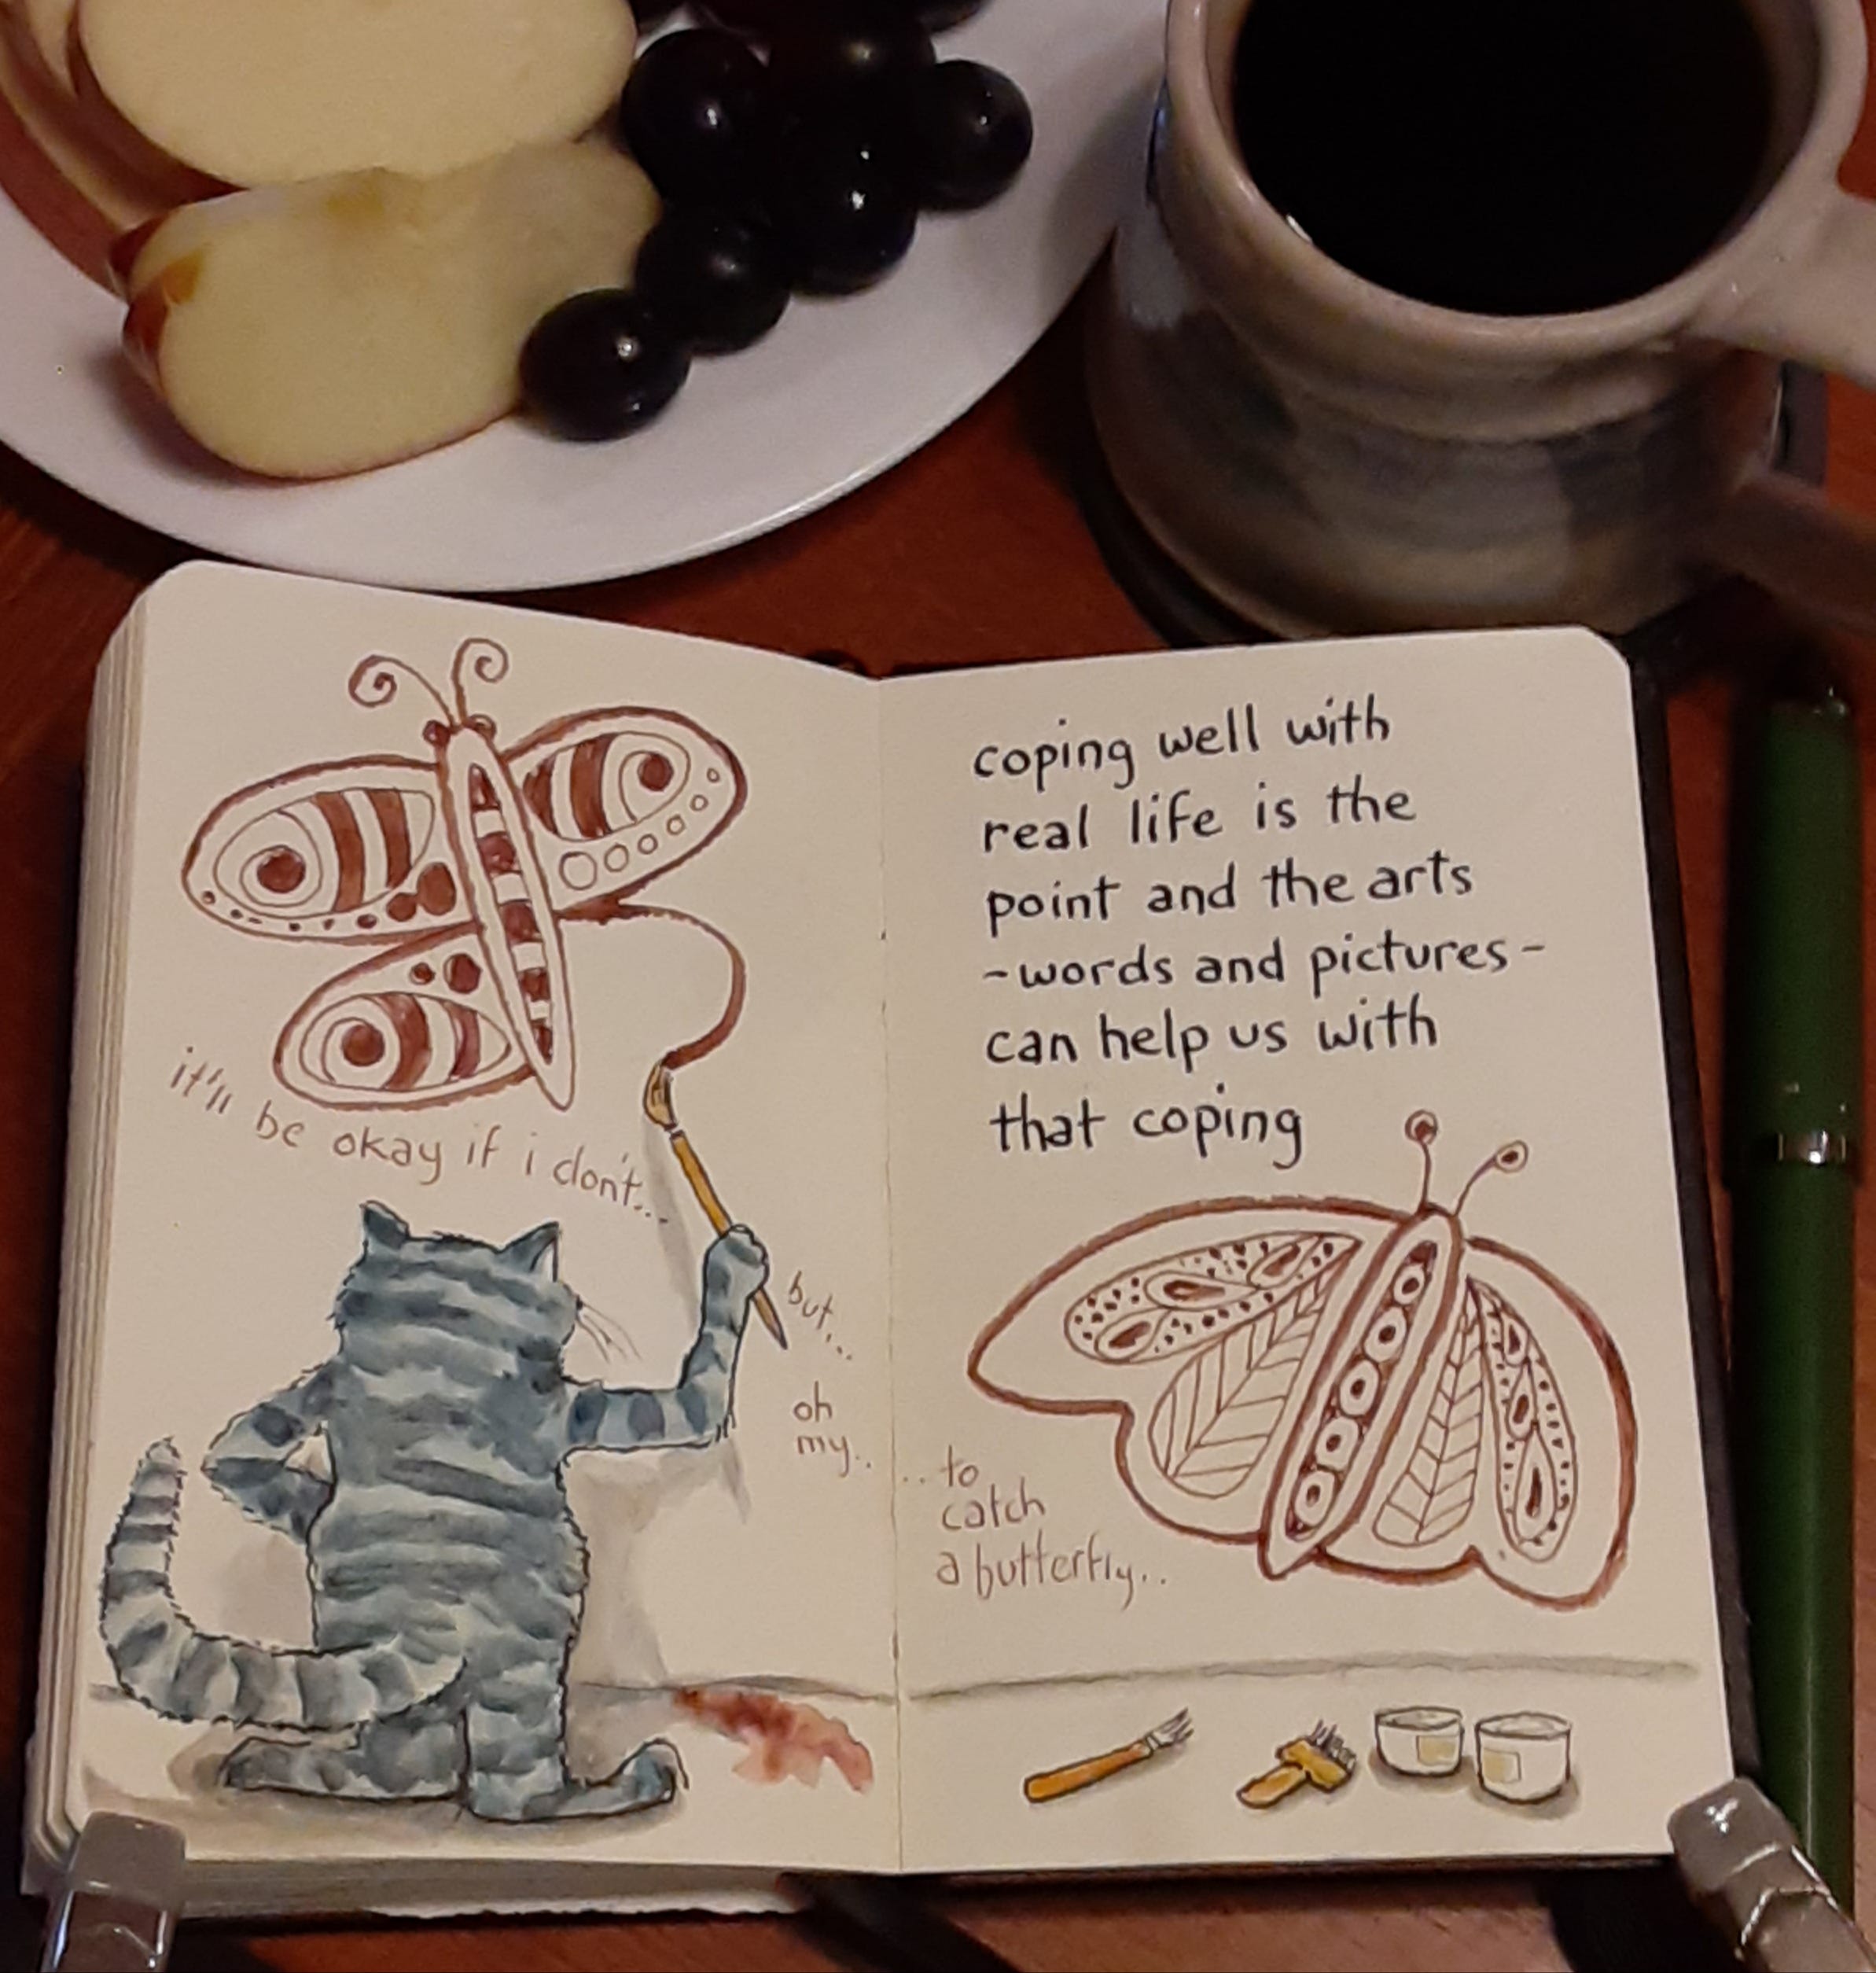 it'll be okay if i don't...
but...
oh
my..
coping well with
real life is the
point and the arts
-words and pictures-
can help us with
that coping
..to
catch
a butterfly..